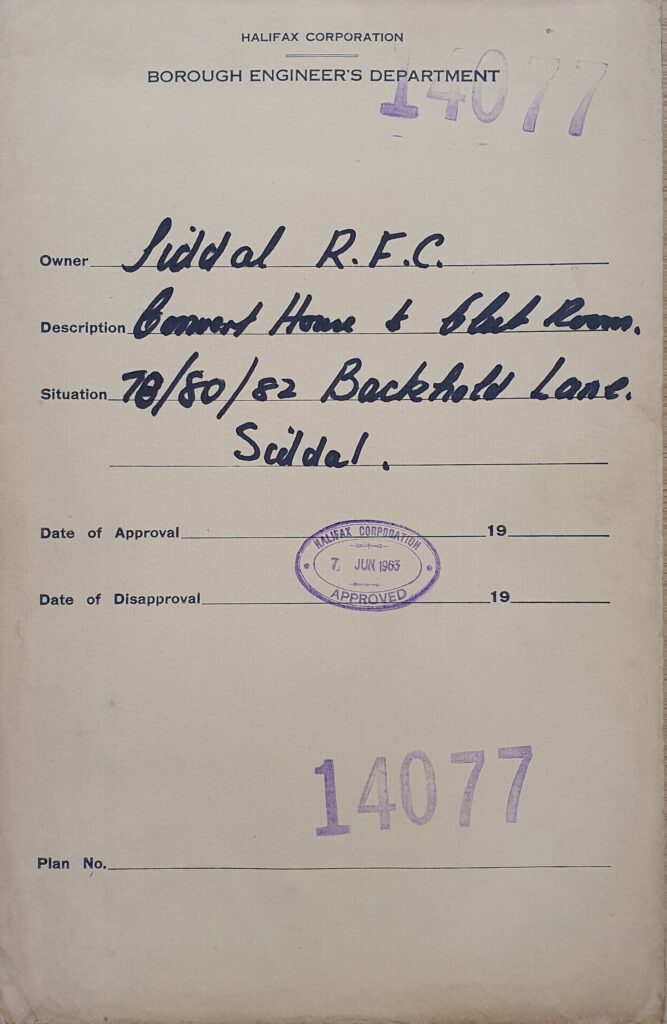 HALIFAX CORPORATION
BOROUGH ENGINEER'S DEPARTMENT
14077
Owner Siddal R.F.C.
Description Convert House to Club Room.
Situation 78/80/82 Backhold Lane.
Siddal.
Date of Approval 19
HALIFAX CORPORATION
7 JUN 1963
APPROVED
Date of Disapproval 19
14077
Plan No.